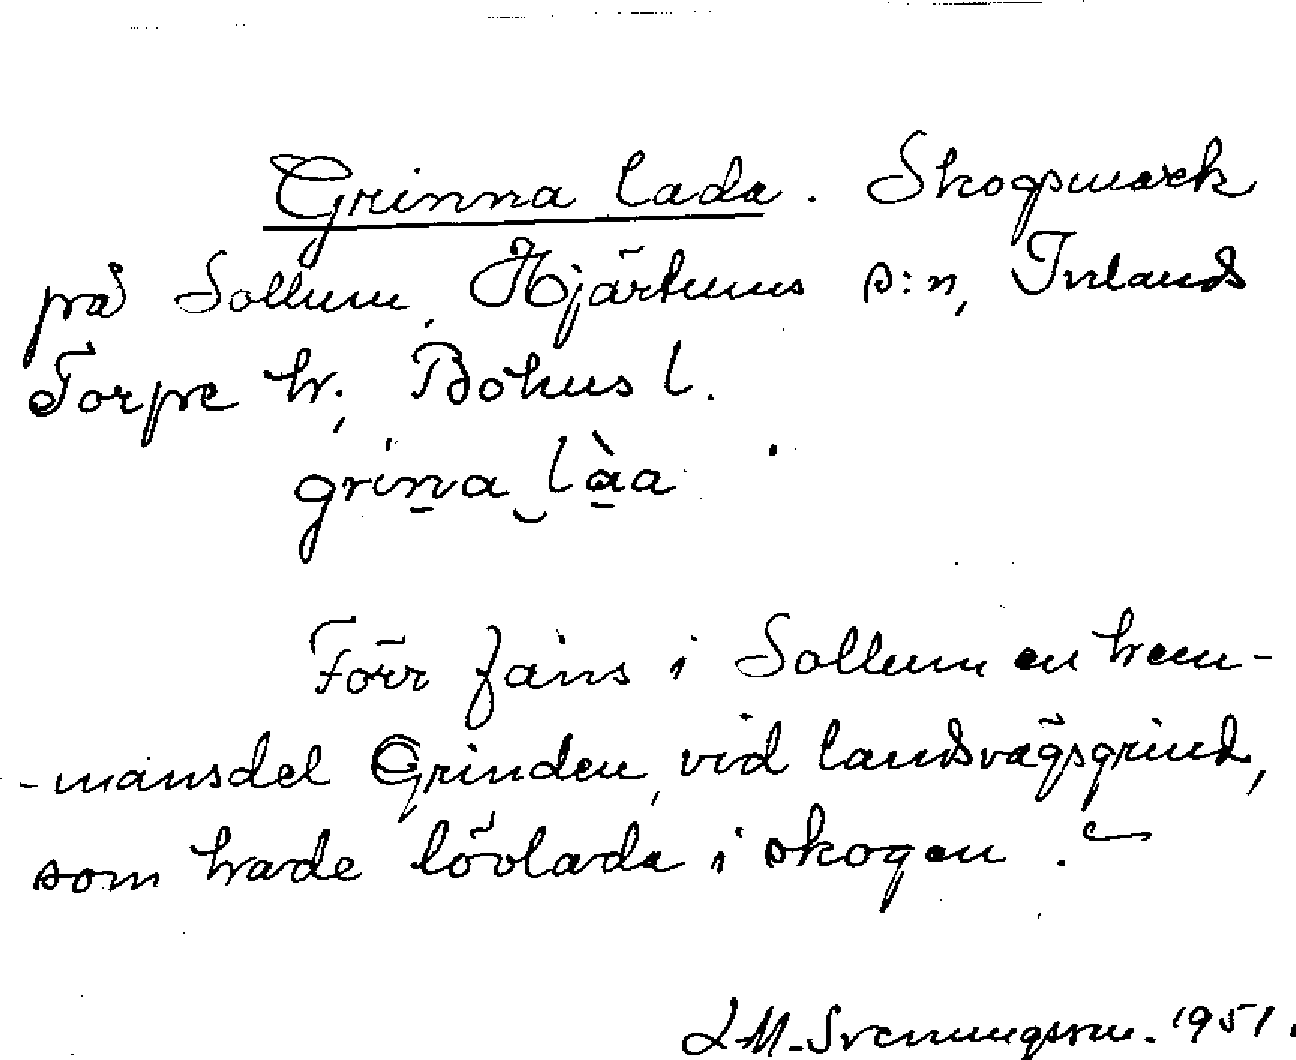 Grinna lada. Skogsmark
på Sollum, Hjärtums s:n, Inlands
Torpe hr., Bohus l.
grina làa
Förr fans i Sollum en hem-
-mansdel Grinden, vid landsvägsgrind,
som hade lövlada i skogen.
L.M. Svenungsson. 1951.